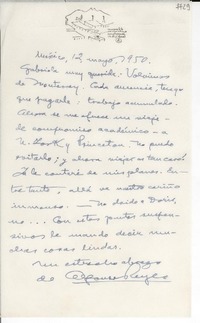 4629
México, 12 mayo, 1950.
Gabriela muy querida: Volvimos
de Monterrey. Cada ausencia, tengo
que pagarla: trabajo acumulado.
Ahora se me ofrece un viaje
de compromiso académico a
N. York y Princeton. No puedo
evitarlo; y ahora viajar es tan caro!
Ya le contaré de mis planes. En-
tre tanto, allá va nuestro cariño
inmenso. — No daído a Doris,
no... Con estos puntos suspen-
sivos le mando decir mu-
chas cosas lindas.
Un estrecho abrazo
de Alfonso Reyes